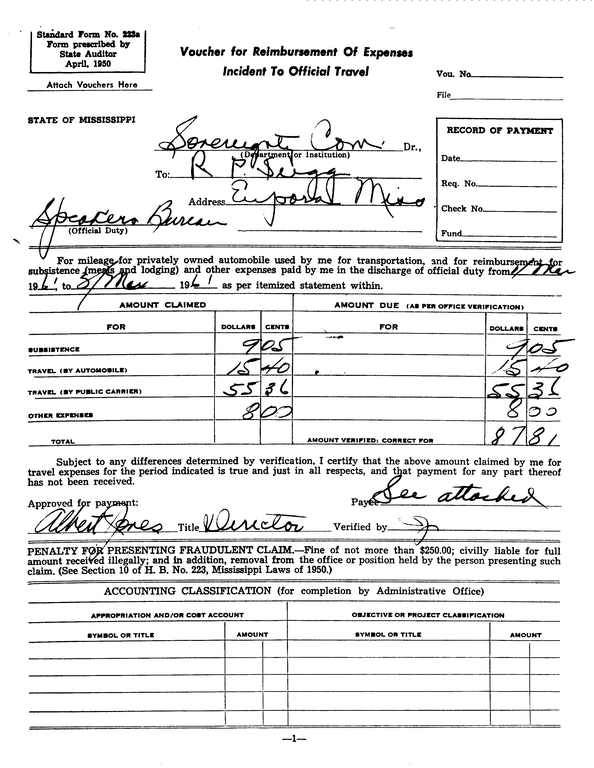 Standard Form No. 223a
Form prescribed by
State Auditor
April, 1950
Attach Vouchers Here
Voucher for Reimbursement Of Expenses
Incident To Official Travel
Vou. No.
File
STATE OF MISSISSIPPI
Sovereignty Com. Dr.,
(Department or institution)
To: R P. Sugg
Address Euporal Miss
Speakers Bureau
(Official Duty)
RECORD OF PAYMENT
Date
Req. No.
Check No.
Fund
For mileage for privately owned automobile used by me for transportation, and for reimbursement for
subsistence (meals and lodging) and other expenses paid by me in the discharge of official duty from 1/ Mar
1961 to 5/ Mar 1961 as per itemized statement within.
AMOUNT CLAIMED AMOUNT DUE (AS PER OFFICE VERIFICATION)
FOR DOLLARS CENTS FOR DOLLARS CENTS
SUBSISTENCE 9 05 9 05
TRAVEL (BY AUTOMOBILE) 15 40 15 40
TRAVEL (BY PUBLIC CARRIER) 55 36 55 36
OTHER EXPENSES 8 00 8 00
TOTAL AMOUNT VERIFIED: CORRECT FOR 87 81
Subject to any differences determined by verification, I certify that the above amount claimed by me for
travel expenses for the period indicated is true and just in all respects, and that payment for any part thereof
has not been received.
Approved for payment: Payee See attached
Albert Jones Title Director Verified by
PENALTY FOR PRESENTING FRAUDULENT CLAIM.—Fine of not more than $250.00; civilly liable for full
amount received illegally; and in addition, removal from the office or position held by the person presenting such
claim. (See Section 10 of H. B. No. 223, Mississippi Laws of 1950.)
ACCOUNTING CLASSIFICATION (for completion by Administrative Office)
APPROPRIATION AND/OR COST ACCOUNT OBJECTIVE OR PROJECT CLASSIFICATION
SYMBOL OR TITLE AMOUNT SYMBOL OR TITLE AMOUNT
—1—